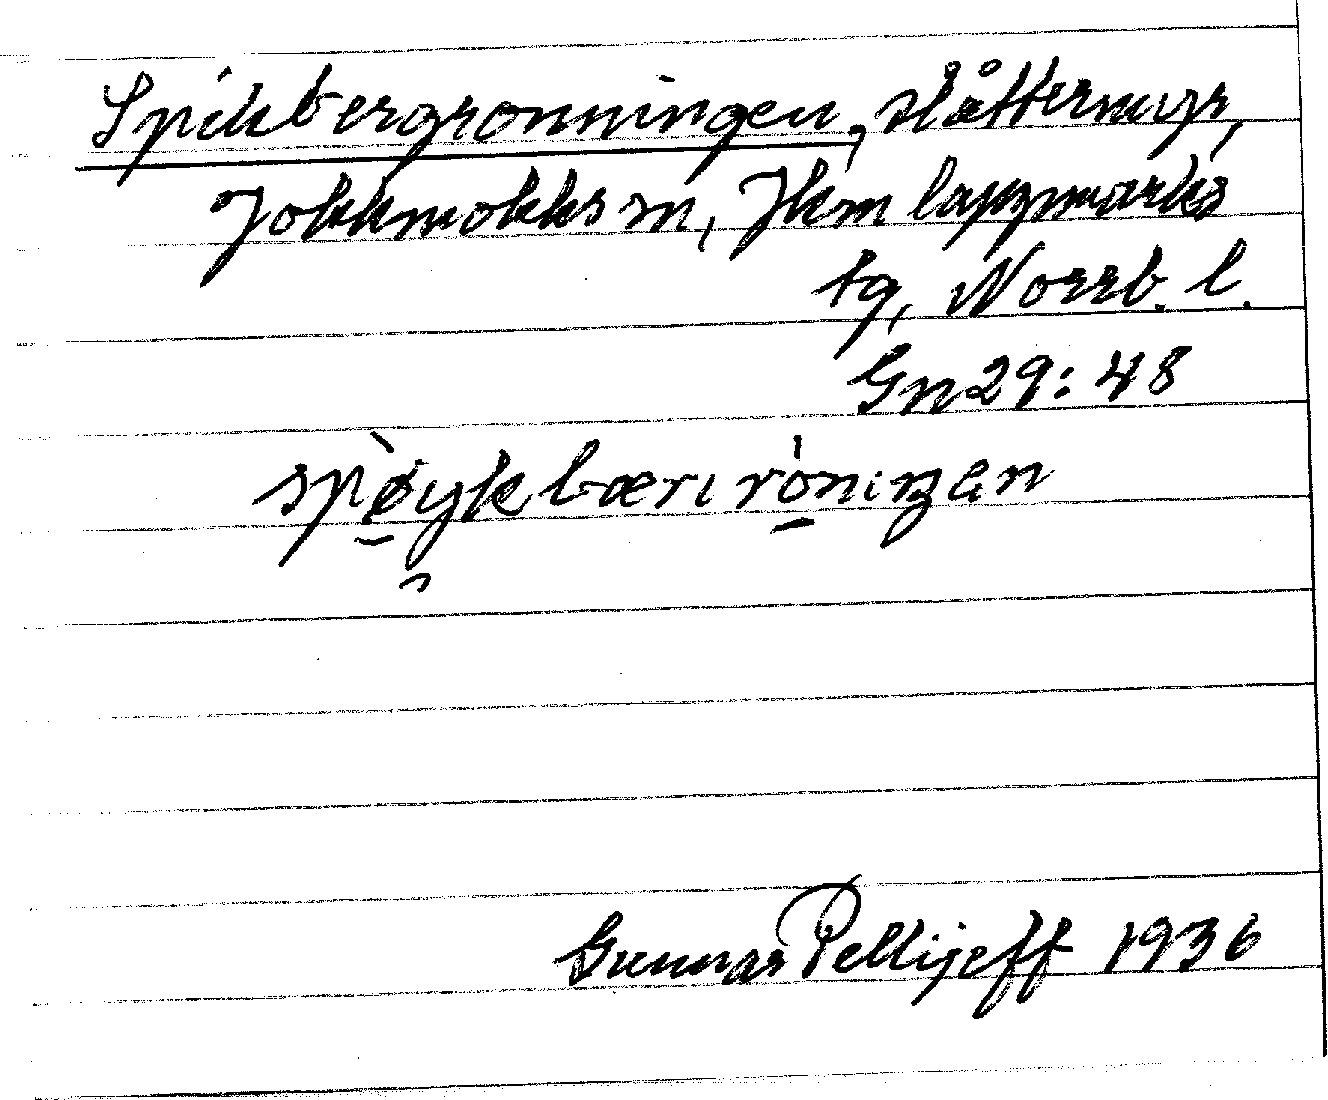 Spikbergronningen, slåttermyr,
Jokkmokks sn, Jkm lappmarks
tg, Norrb. l.
Gn 29:48
spøykbærıröniŋan
Gunnar Pellijeff 1936